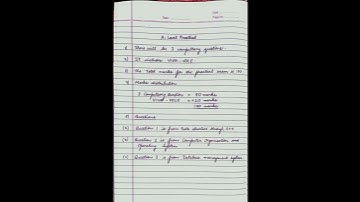 A-Level Practical
1) There will be 3 compulsory questions
2) It includes VIVA-VOCE
3) The total marks for the practical exam is 100
4) Marks distribution
3 Compulsory Question = 80 marks
VIVA-VOCE = +20 marks
100 marks
5) Questions
(a) Question 1 is from Data structure through C++
(b) Question 2 is from Computer Organisation and
Operating System
(c) Question 3 is from Database management system